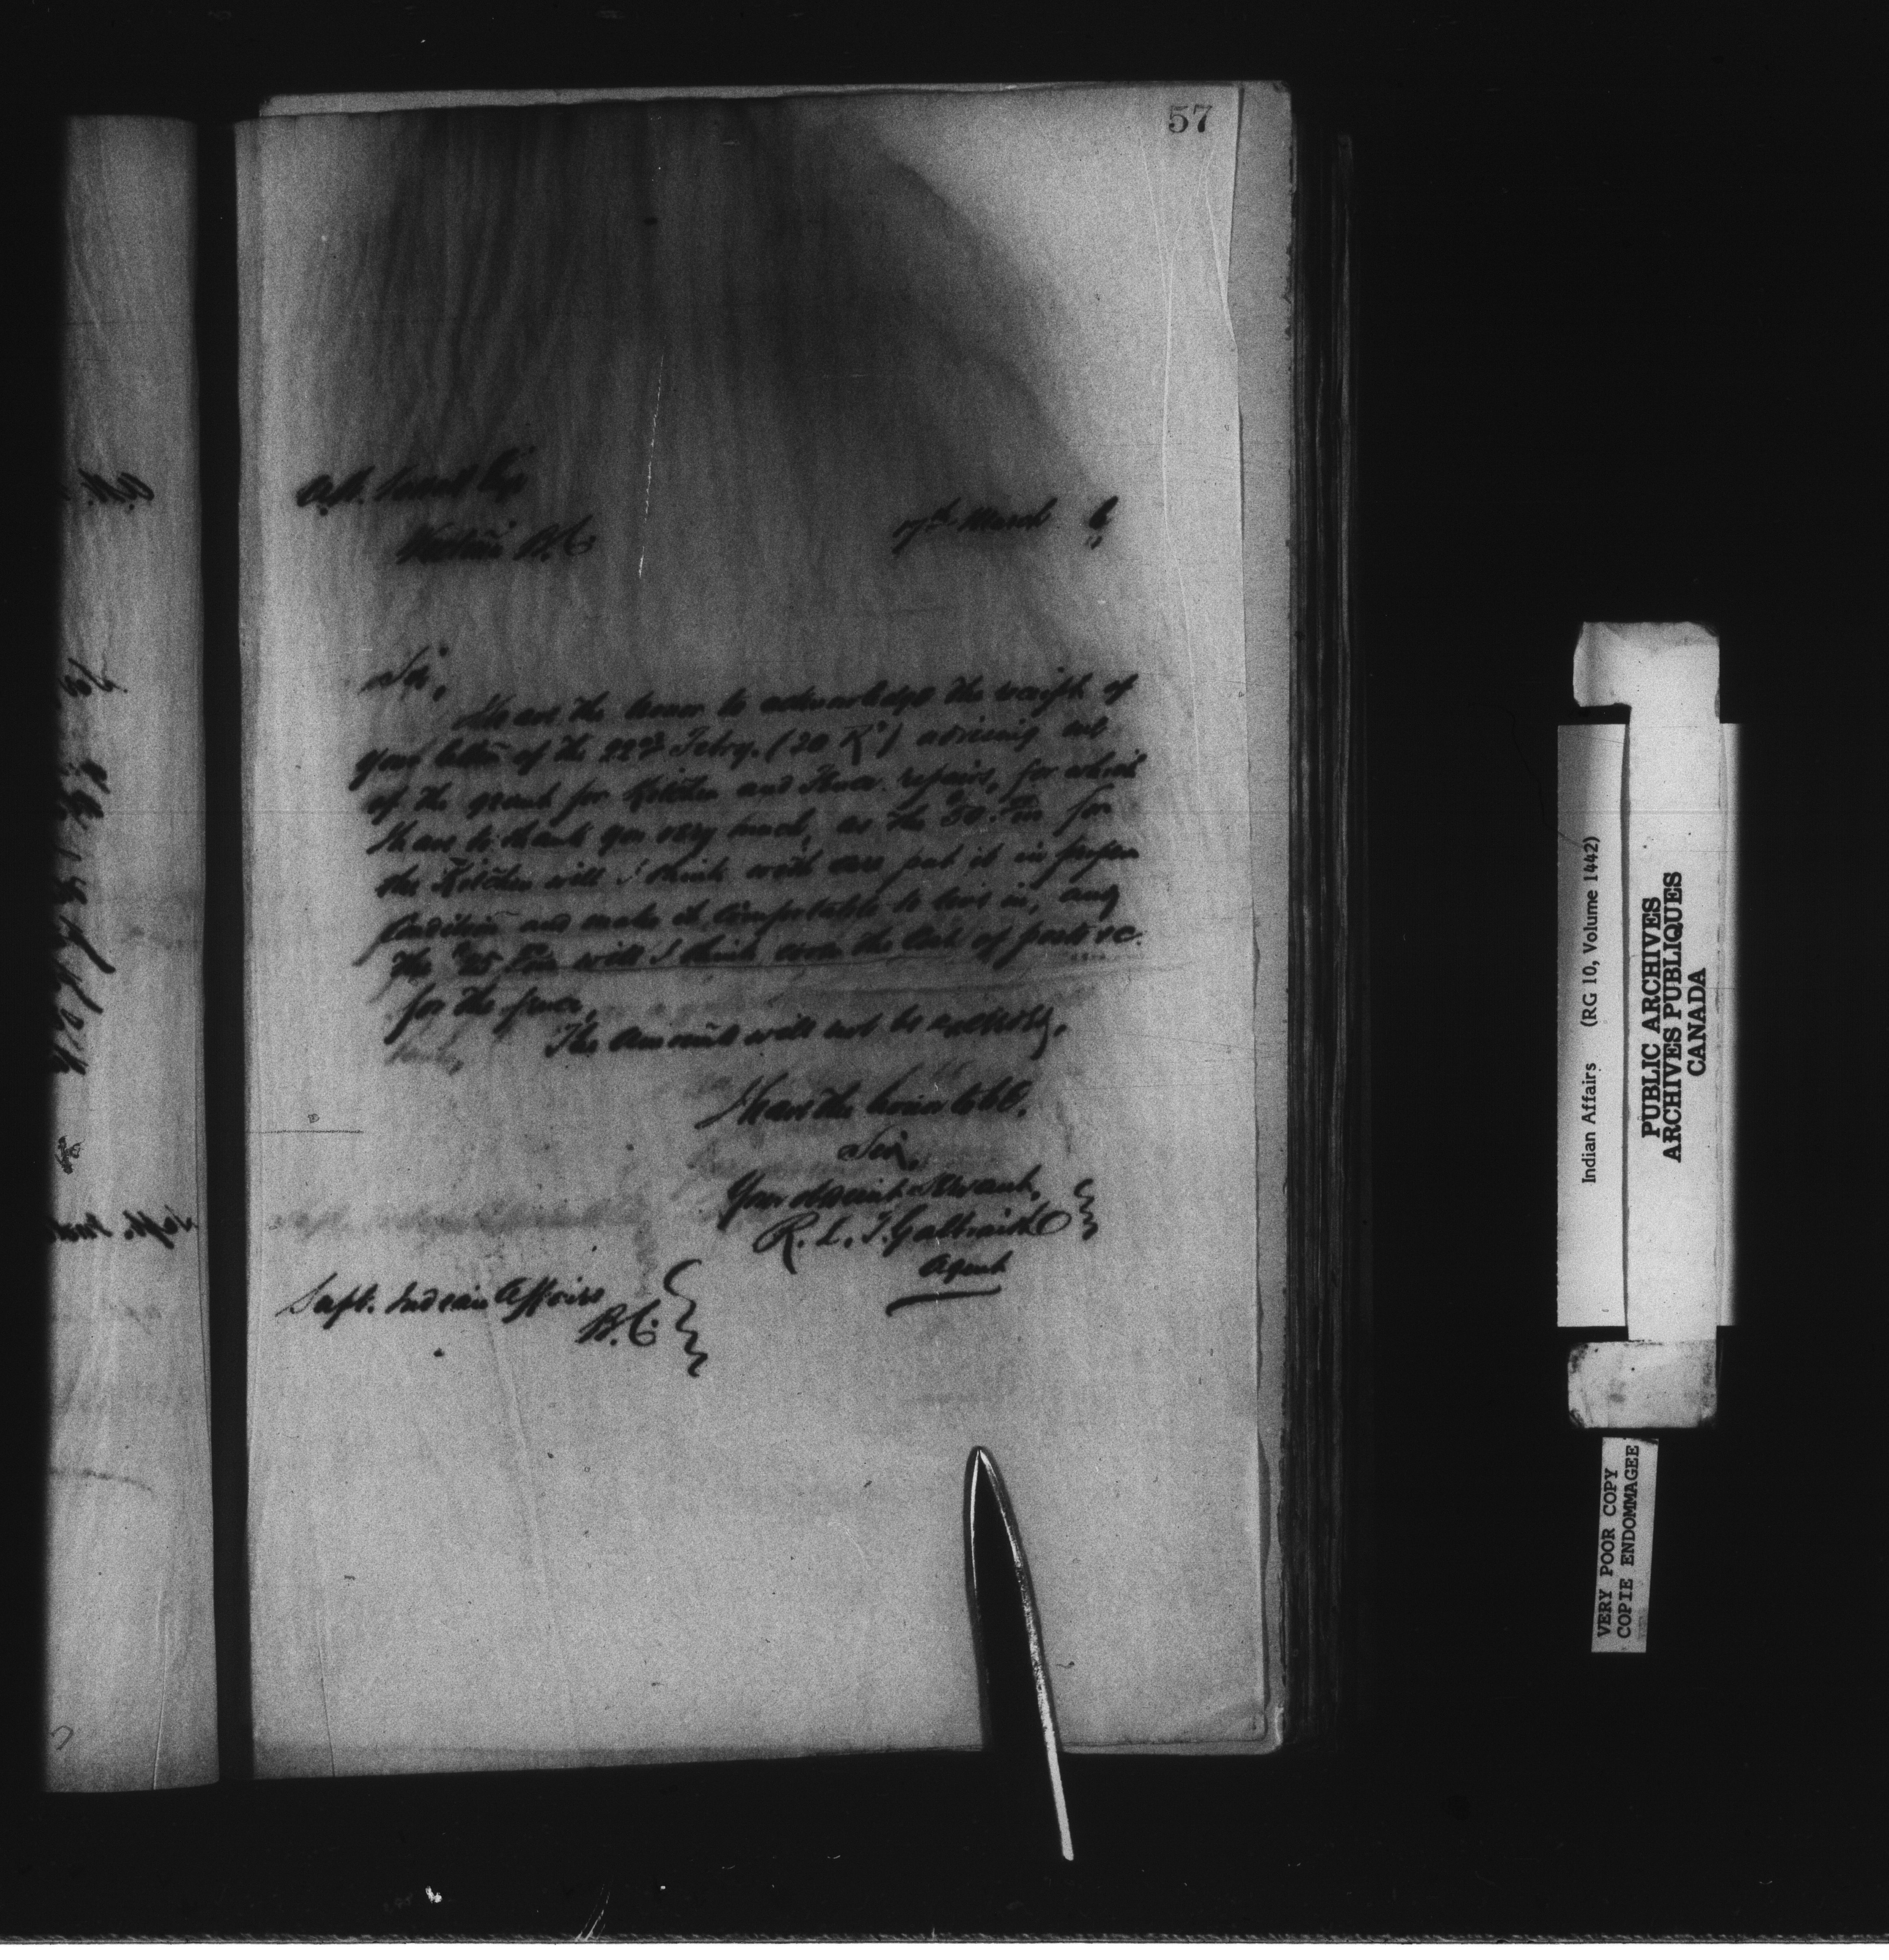 57
A.W. Vowell Esq
Victoria B.C.
17th March 6
Sir,
I have the honor to acknowledge the receipt of
your letter of the 22nd Febry. advising me
of the grant for Kitchen and Fence repairs, for which
I have to thank you very much, as the $50 for
the Kitchen will I think with care put it in proper
Condition and make it comfortable to live in, and
the $25 will I think cover the cost of posts &c.
for the fence,
The amounts will not be exceeded.
I have the honor to be,
Sir,
Your obedient Servant,
R. L. T. Galbraith
Agent
Supt. Indian Affairs
B.C.
Indian Affairs (RG 10, Volume 1442)
PUBLIC ARCHIVES
ARCHIVES PUBLIQUES
CANADA
VERY POOR COPY
COPIE ENDOMMAGEE